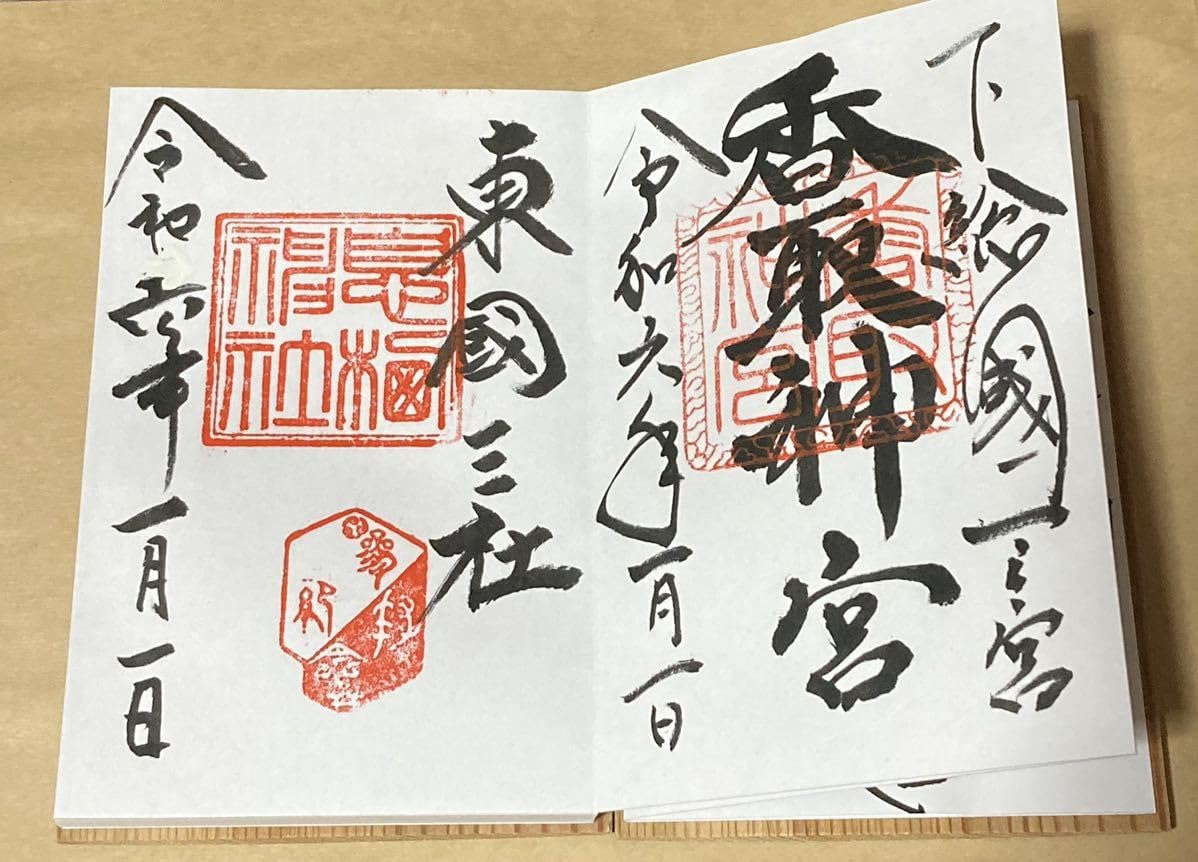 下総國一之宮
香取神宮
令和六年一月一日
香取神宮
東國三社
息栖神社
令和六年一月一日